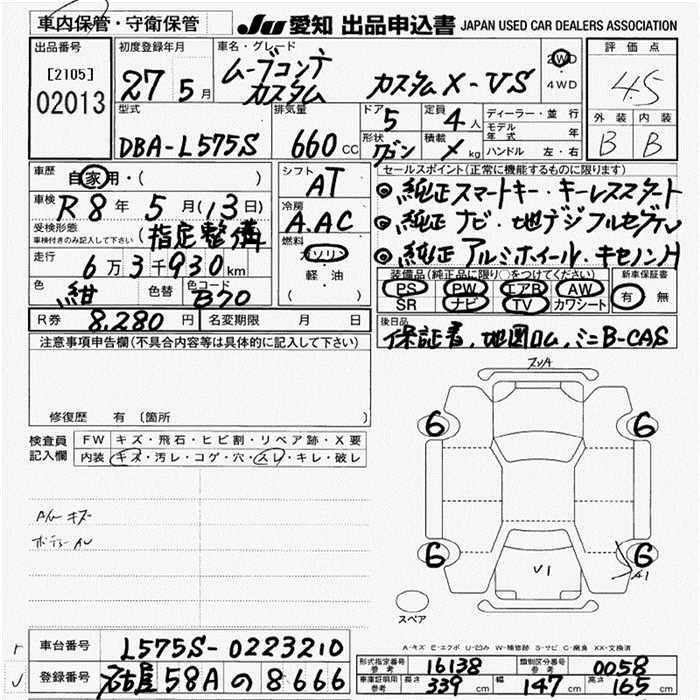 車内保管・守衛保管 JU 愛知 出品申込書 JAPAN USED CAR DEALERS ASSOCIATION
出品番号 初度登録年月 車名・グレード 2WD 評価点
[2105] 27年5月 ムーブコンテ カスタム カスタムX-VS ・4WD 4.5
02013
型式 排気量 ドア 5 定員 4人 ディーラー・並行 外装 内装
DBA-L575S 660CC 形状 ワゴン 積載 kg モデル年式 年 B B
ハンドル 左・右
車歴 自家用・( ) シフト AT セールスポイント(正常に機能するものに限ります)
車検 R8年5月(13日) 冷房 A.AC ◎純正スマートキー・キーレススタート
受検形態 車検付きのみ記入して下さい (指定整備) 燃料 ガソリン ・軽・油 ( ) ◎純正ナビ・地デジフルセグTV
走行 6万3千930km ◎純正アルミホイール・キセノンH
色 紺 色替 色コード B70 装備品(純正品に限り○をつけてください) 新車保証書
PS PW エアB AW 有 無
SR ナビ TV カワシート
R券 8,280円 名変期限 月 日 後日品
注意事項申告欄(不具合内容等は具体的に記入して下さい) 保証書,地図ロム,ミニB-CAS
修復歴 有 〔箇所 〕
検査員記入欄 FW キズ・飛石・ヒビ割・リペア跡・X要
内装 キズ・汚レ・コゲ・穴・スレ・キレ・破レ
6 6
A/W キズ
6 6
V1 A1
スペア
A-キズ E-エクボ U-凹み W-補修跡 S-サビ C-腐食 XX-交換済
車台番号 L575S-0223210
形式指定番号 参考 16138 類別区分番号 参考 0058
登録番号 名古屋 58A の 8666
車庫証明用 参考 長さ 339cm 幅 147cm 高さ 165cm